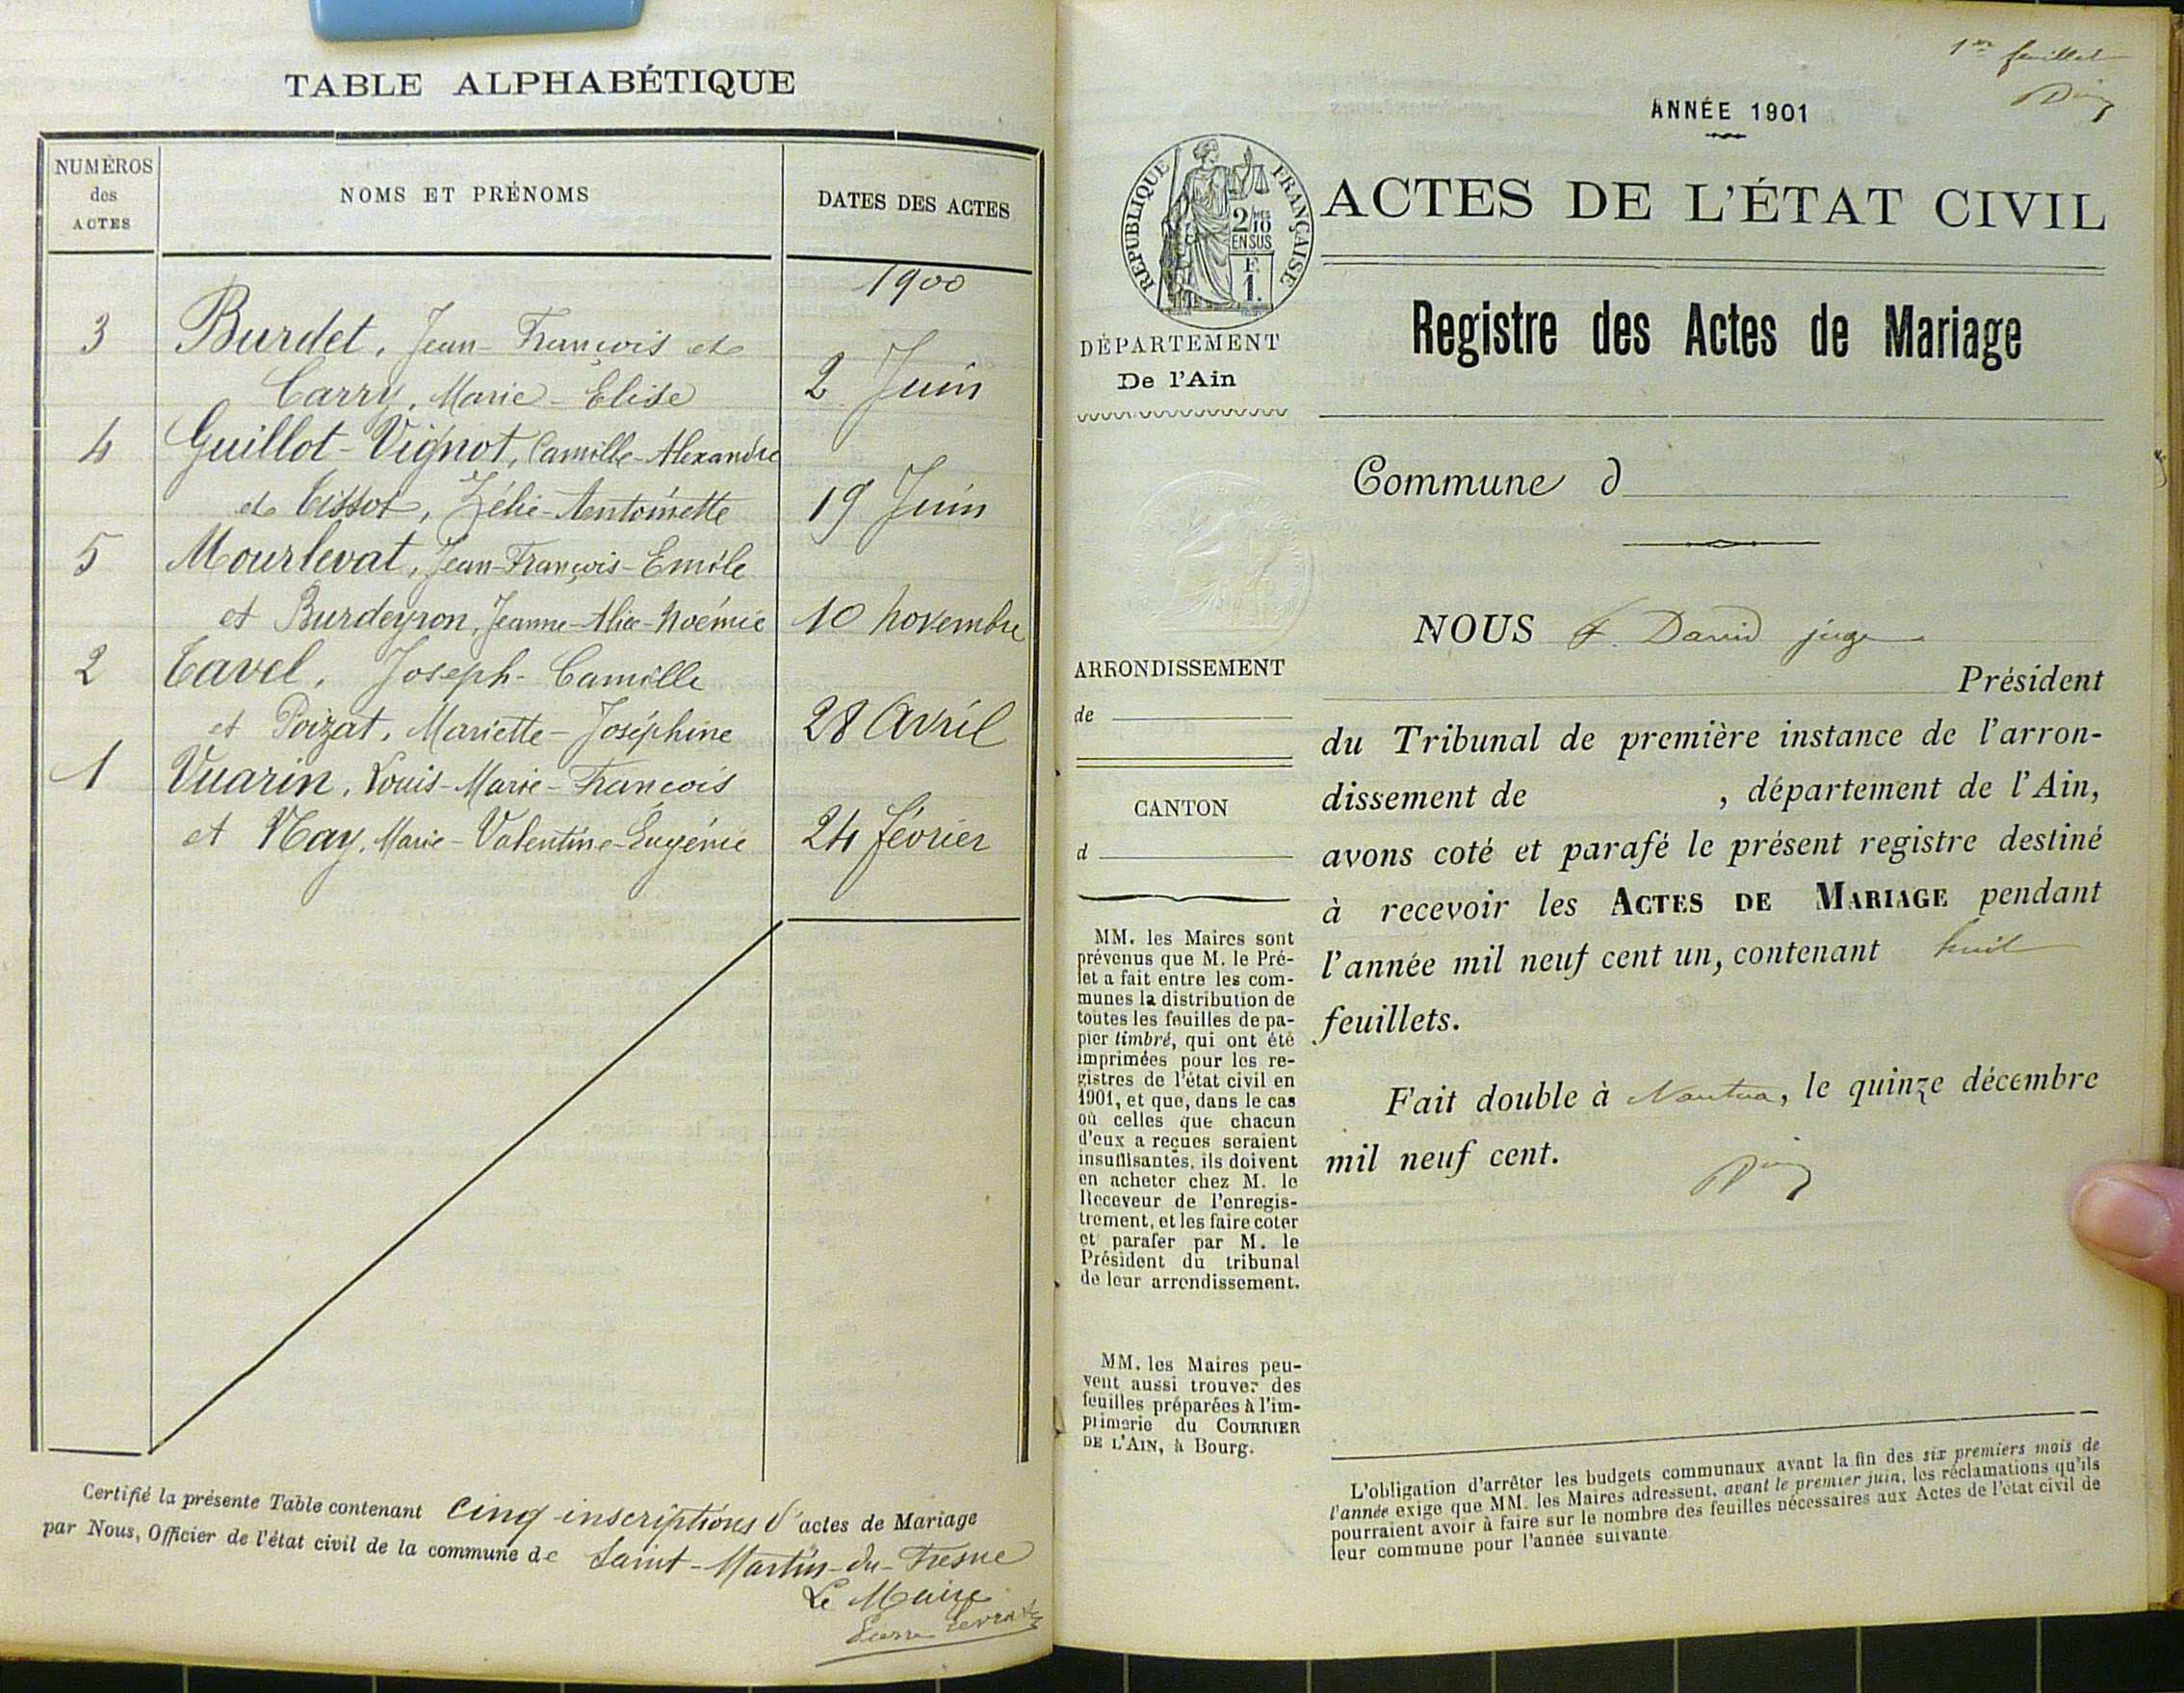 TABLE ALPHABÉTIQUE
NUMÉROS
des
ACTES
NOMS ET PRÉNOMS
DATES DES ACTES
1900
3 Burdet, Jean-François et
Carry, Marie-Elise 2 Juin
4 Guillot-Vignot, Camille-Alexandre
et Tissot, Zélie-Antoinette 19 Juin
5 Mourlevat, Jean-François-Emile
et Burdeyron, Jeanne-Alice-Noémie 10 novembre
2 Tavel, Joseph-Camille
et Poizat, Mariette-Joséphine 28 Avril
1 Vuarin, Louis-Marie-François
et Nay, Marie-Valentine-Eugénie 24 février
Certifié la présente Table contenant Cinq inscriptions d'actes de Mariage
par Nous, Officier de l'état civil de la commune de Saint-Martin-du-Fresne
Le Maire
Pierre
1er feuillet
ANNÉE 1901
RÉPUBLIQUE FRANÇAISE
2/10
EN SUS
F.
1.
ACTES DE L'ÉTAT CIVIL
Registre des Actes de Mariage
DÉPARTEMENT
De l'Ain
Commune d
ARRONDISSEMENT
de
CANTON
d
MM. les Maires sont
prévenus que M. le Pré-
fet a fait entre les com-
munes la distribution de
toutes les feuilles de pa-
pier timbré, qui ont été
imprimées pour les re-
gistres de l'état civil en
1901, et que, dans le cas
où celles que chacun
d'eux a reçues seraient
insuffisantes, ils doivent
en acheter chez M. le
Receveur de l'enregis-
trement, et les faire coter
et parafer par M. le
Président du tribunal
de leur arrondissement.
MM. les Maires peu-
vent aussi trouver des
feuilles préparées à l'im-
primerie du COURRIER
DE L'AIN, à Bourg.
NOUS F. David juge
Président
du Tribunal de première instance de l'arron-
dissement de , département de l'Ain,
avons coté et parafé le présent registre destiné
à recevoir les ACTES DE MARIAGE pendant
l'année mil neuf cent un, contenant huit
feuillets.
Fait double à Nantua, le quinze décembre
mil neuf cent.
L'obligation d'arrêter les budgets communaux avant la fin des six premiers mois de
l'année exige que MM. les Maires adressent, avant le premier juin, les réclamations qu'ils
pourraient avoir à faire sur le nombre des feuilles nécessaires aux Actes de l'état civil de
leur commune pour l'année suivante